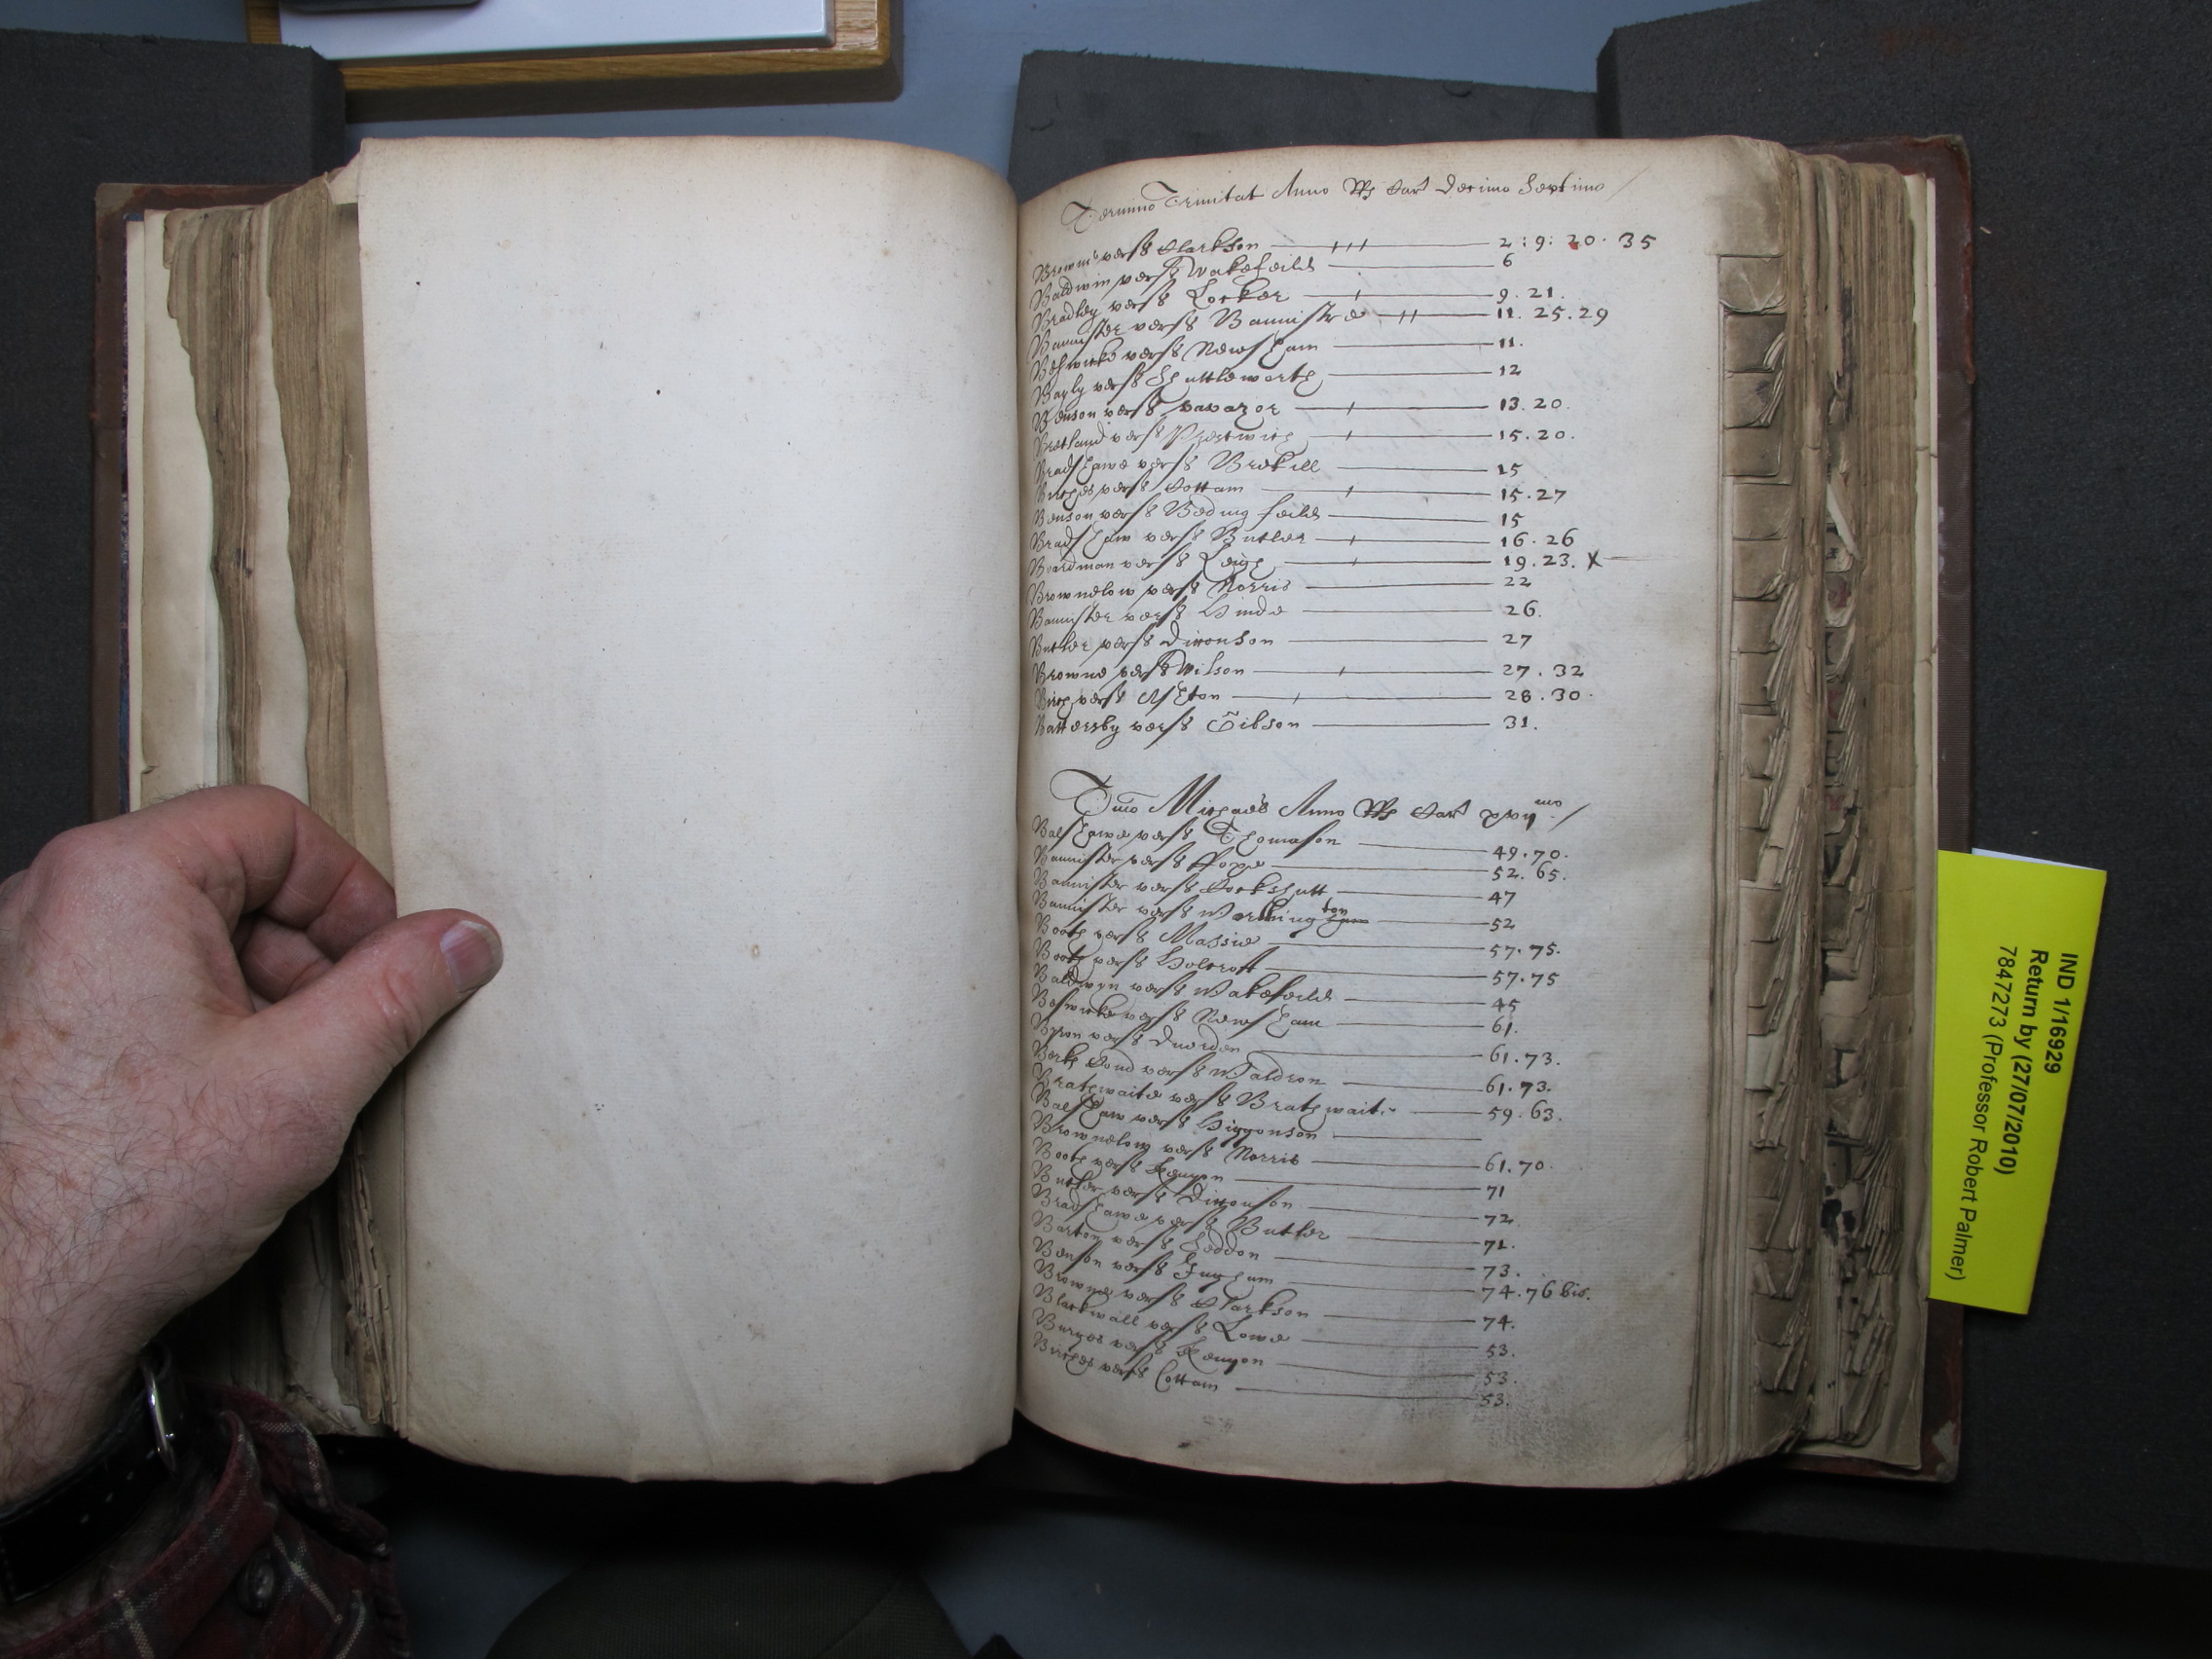 Termino Trinitat Anno RRs Car decimo Septimo
Browne versus Clarkson 2:9:20.35
Baldwin versus Wakefeild 6
Bradley versus Locker 9.21.
Bannister versus Bannistre 11.25.29
Beswicke versus Newsham 11.
Bayly versus Shuttleworth 12
Benson versus Vavazor 13.20.
Bretland versus Prestwich 15.20.
Bradshawe versus Brekill 15
Birches versus Cottam 15.27
Benson versus Bedingfeild 15
Bradshaw versus Butler 16.26
Boardman versus Leigh 19.23. X
Brownelow versus Norris 22
Bannister versus Hinde 26.
Butler versus Diconson 27
Browne versus Wilson 27.32
Birch versus Ashton 28.30.
Battersby versus Gibson 31.
Tmio Michaes Anno RRs Car xvij mo
Balshawe versus Thomason 49.70.
Bannister versus ffoxe 52.65.
Bannister versus Cockshutt 47
Bannister versus Workington 52
Booth versus Massie 57.75.
Booth versus Holcroft 57.75
Baldwyn versus Wakefeild 45
Beswicke versus Newsham 61.
Byron versus Duerden 61.73.
Berk Cond versus Waldron 61.73.
Brathwaite versus Brathwaite 59.63.
Balshaw versus Higgonson
Brownelow versus Norris 61.70.
Booth versus Kenyon 71
Butler versus Diconson 72
Bradshawe versus Butler 71.
Barton versus Seddon 73.
Benson versus Ingham 74.76 bis.
Browne versus Clarkson 74.
Blackwall versus Lowe 53.
Burges versus Kenyon 53.
Birches versus Cottam 53.
IND 1/16929
Return by (27/07/2010)
7847273 (Professor Robert Palmer)